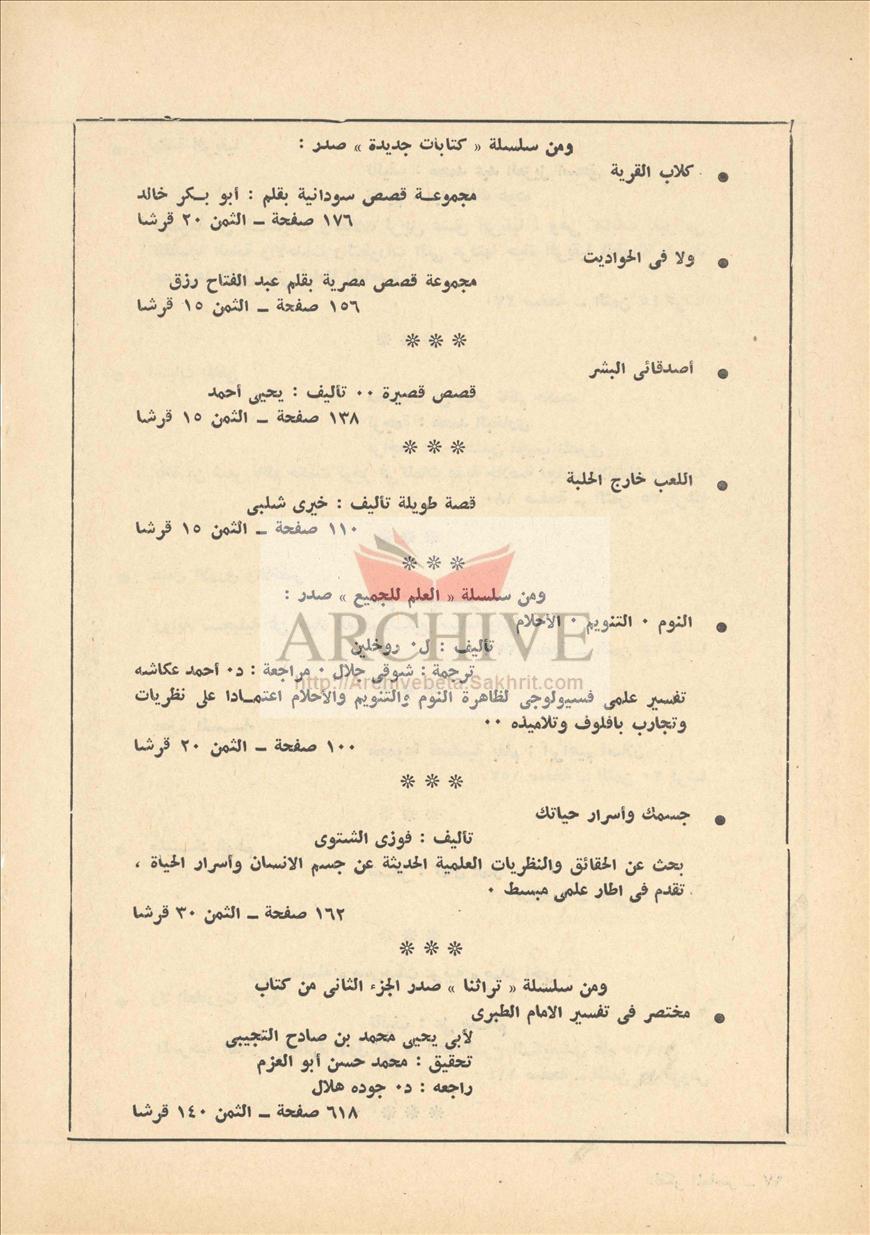 ومن سلسلة « كتابات جديدة » صدر :
● كلاب القرية
مجموعـة قصص سودانية بقلم : أبو بـكر خالد
١٧٦ صفحة ــ الثمن ٢٠ قرشا
● ولا فى الحواديت
مجموعة قصص مصرية بقلم عبد الفتاح رزق
١٥٦ صفحة ــ الثمن ١٥ قرشا
* * *
● أصدقائى البشر
قصص قصيرة ٠٠ تأليف : يحيى أحمد
١٣٨ صفحة ــ الثمن ١٥ قرشا
* * *
● اللعب خارج الحلبة
قصة طويلة تأليف : خيرى شلبى
١١٠ صفحة ــ الثمن ١٥ قرشا
* * *
ومن سلسلة « العلم للجميع » صدر :
● النوم ٠ التنويم ٠ الأحلام
ARCHIVE
تأليف : ل٠ روخلين
ترجمة : شوقى جلال ٠ مراجعة : د٠ أحمد عكاشه
http://Archivebeta.Sakhrit.com
تفسير علمى فسيولوجى لظاهرة النوم والتنويم والأحلام اعتمـادا على نظريات
وتجارب بافلوف وتلاميذه ٠٠
١٠٠ صفحة ــ الثمن ٢٠ قرشا
* * *
● جسمك وأسرار حياتك
تأليف : فوزى الشتوى
بحث عن الحقائق والنظريات العلمية الحديثة عن جسم الانسان وأسرار الحياة ،
تقدم فى اطار علمى مبسط ٠
١٦٢ صفحة ــ الثمن ٣٠ قرشا
* * *
ومن سلسلة « تراثنا » صدر الجزء الثانى من كتاب
● مختصر فى تفسير الامام الطبرى
لأبى يحيى محمد بن صادح التجيبى
تحقيق : محمد حسن أبو العزم
راجعه : د٠ جوده هلال
٦١٨ صفحة ــ الثمن ١٤٠ قرشا